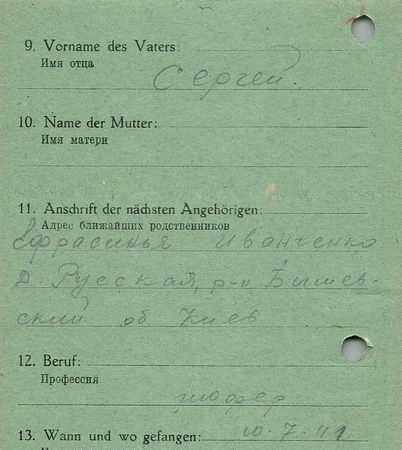 9. Vorname des Vaters:
Имя отца
Сергей.
10. Name der Mutter:
Имя матери
11. Anschrift der nächsten Angehörigen:
Адрес ближайших родственников
Ефрасинья Иванченко
Д. Русская, р-н Бышев-
ский об Киев
12. Beruf:
Профессия
шофер
13. Wann und wo gefangen: 10.7.41